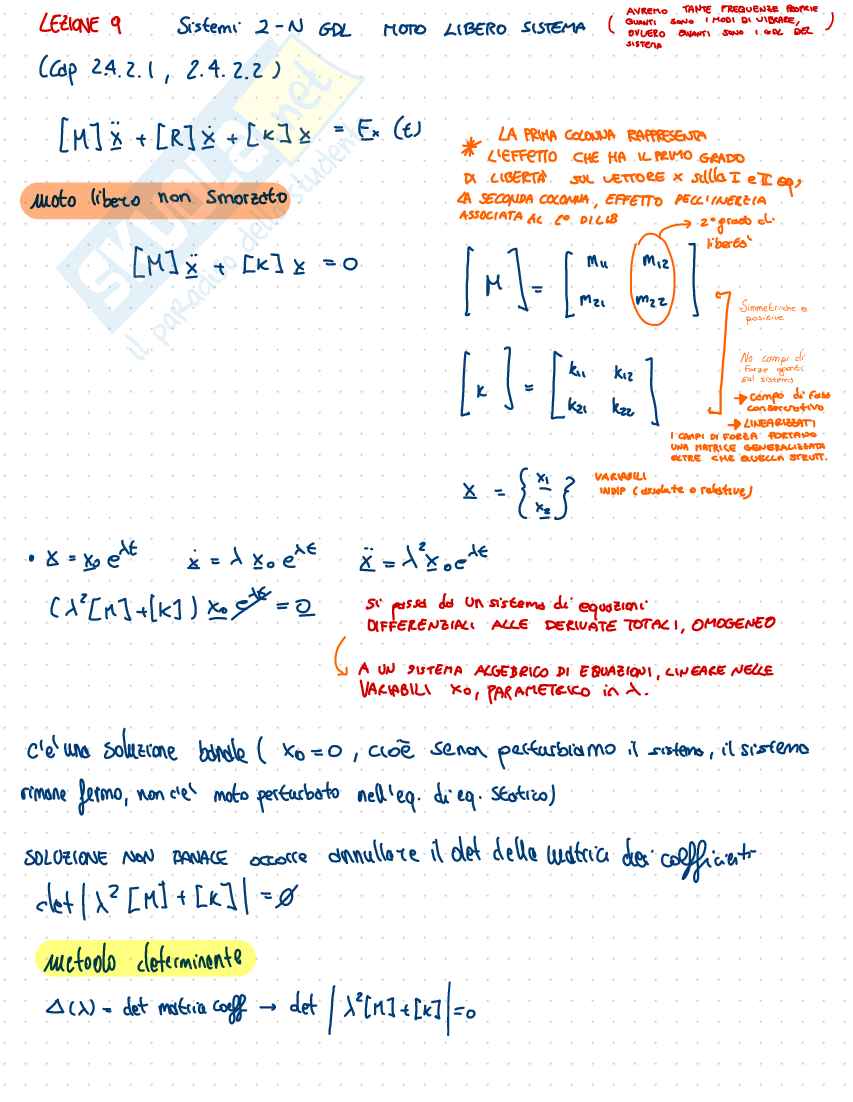 LEZIONE 9 Sistemi 2-N GDL MOTO LIBERO SISTEMA
( AVREMO TANTE FREQUENZE PROPRIE
QUANTI SONO I MODI DI VIBRARE,
OVVERO QUANTI SONO I GDL DEL
SISTEMA )
(Cap 2.4.2.1, 2.4.2.2)
[M]ẍ + [R]ẋ + [K]x = Fx (t)
moto libero non smorzato
[M]ẍ + [K]x = 0
* LA PRIMA COLONNA RAPPRESENTA
L'EFFETTO CHE HA IL PRIMO GRADO
DI LIBERTÀ SUL VETTORE X sulla I e II eq,
LA SECONDA COLONNA, EFFETTO DELL'INERZIA
ASSOCIATA AL 2° DI LIB
→ 2° grado di
libertà
[M] = [m11 m12
m21 m22]
Simmetriche e
positive
No campi di
forze agenti
sul sistema
→ campo di forze
conservativo
→ LINEARIZZATI
I CAMPI DI FORZA PORTANO
UNA MATRICE GENERALIZZATA
OLTRE CHE QUELLA STRUTT.
[K] = [k11 k12
k21 k22]
x = {x1
x2}
VARIABILI
INDIP (assolute o relative)
• x = x0 e^λt ẋ = λ x0 e^λt ẍ = λ² x0 e^λt
(λ²[M]+[K]) x0 e^λt = 0
Si passa da un sistema di equazioni
DIFFERENZIALI ALLE DERIVATE TOTALI, OMOGENEO
A UN SISTEMA ALGEBRICO DI EQUAZIONI, LINEARE NELLE
VARIABILI X0, PARAMETRICO in λ.
c'è una soluzione banale ( x0=0, cioè se non perturbiamo il sistema, il sistema
rimane fermo, non c'è moto perturbato nell'eq. di eq. statico)
SOLUZIONE NON BANALE occorre annullare il det della matrice dei coefficienti
det|λ²[M]+[K]| = 0
metodo determinante
Δ(λ) = det matrice coeff → det |λ²[M]+[K]| = 0
SKUOLA.net
il paradiso dello studente